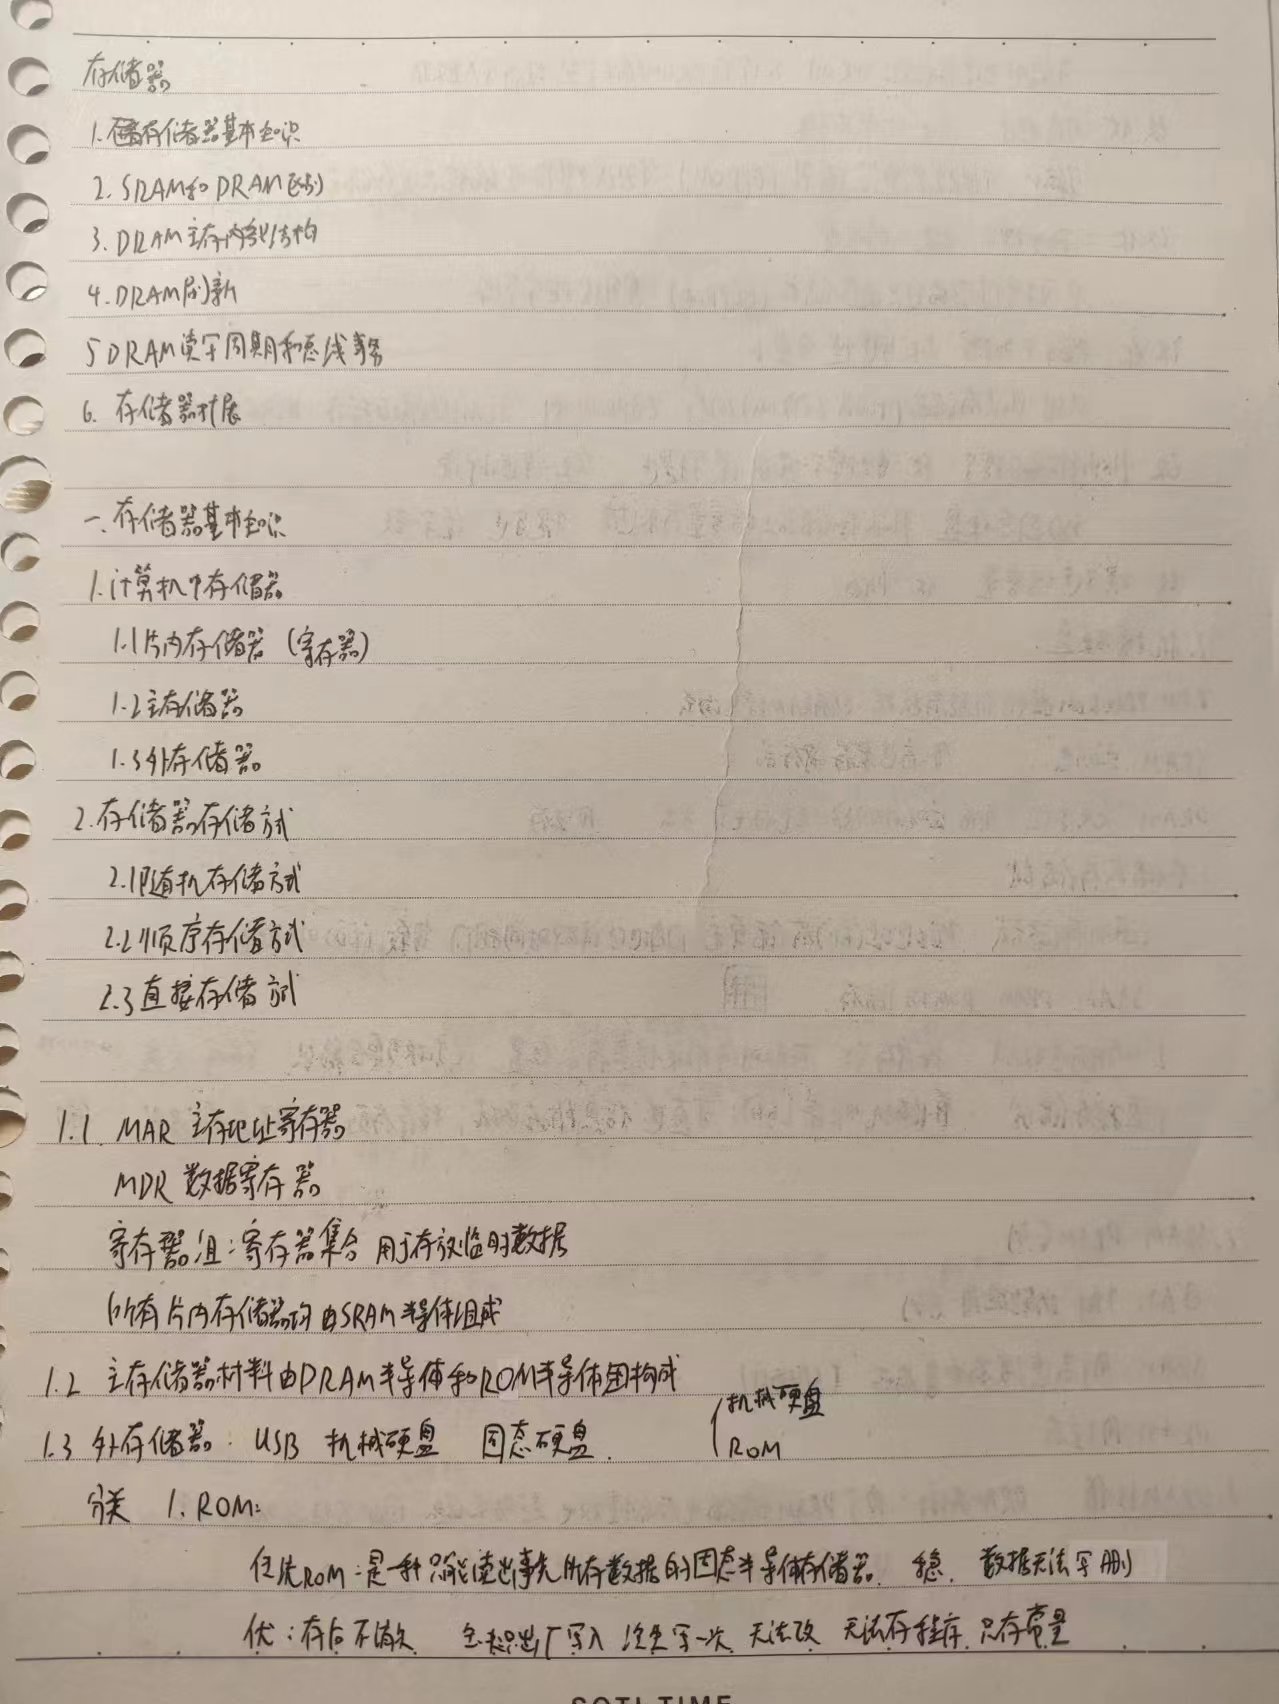 存储器
1.存储器基本知识
2.SRAM和DRAM区别
3.DRAM主存内部结构
4.DRAM刷新
5 DRAM读写周期和总线事务
6.存储器扩展
一.存储器基本知识
1.计算机中存储器
1.1片内存储器(寄存器)
1.2主存储器
1.3外存储器
2.存储器存储方式
2.1随机存储方式
2.2顺序存储方式
2.3直接存储方式
1.1. MAR 主存地址寄存器
MDR 数据寄存器
寄存器组:寄存器集合 用于存放临时数据
所有片内存储器均由SRAM半导体组成
1.2 主存储器材料由DRAM半导体和ROM半导体构成
1.3 外存储器: USB 机械硬盘 固态硬盘.
机械硬盘
ROM
分类 1.ROM:
传统ROM:是一种只能读出事先所存数据的固态半导体存储器. 稳. 数据无法写删
优:存后不消失 出厂写入 写一次 无法改 无法存程序 只存常量